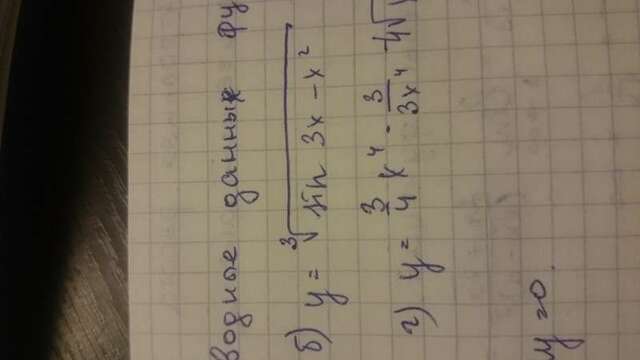 водные данных фу
б) y = ∛(sin 3x − x²)
г) y = 3/4 x⁴ - 3/(3x⁴) - 4√
y = 0.